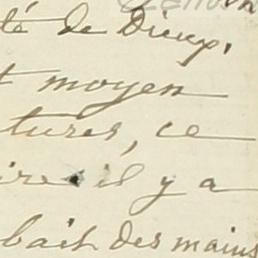 té de Dieux,
t moyen
tures, ce
ire il y a
bait des mains